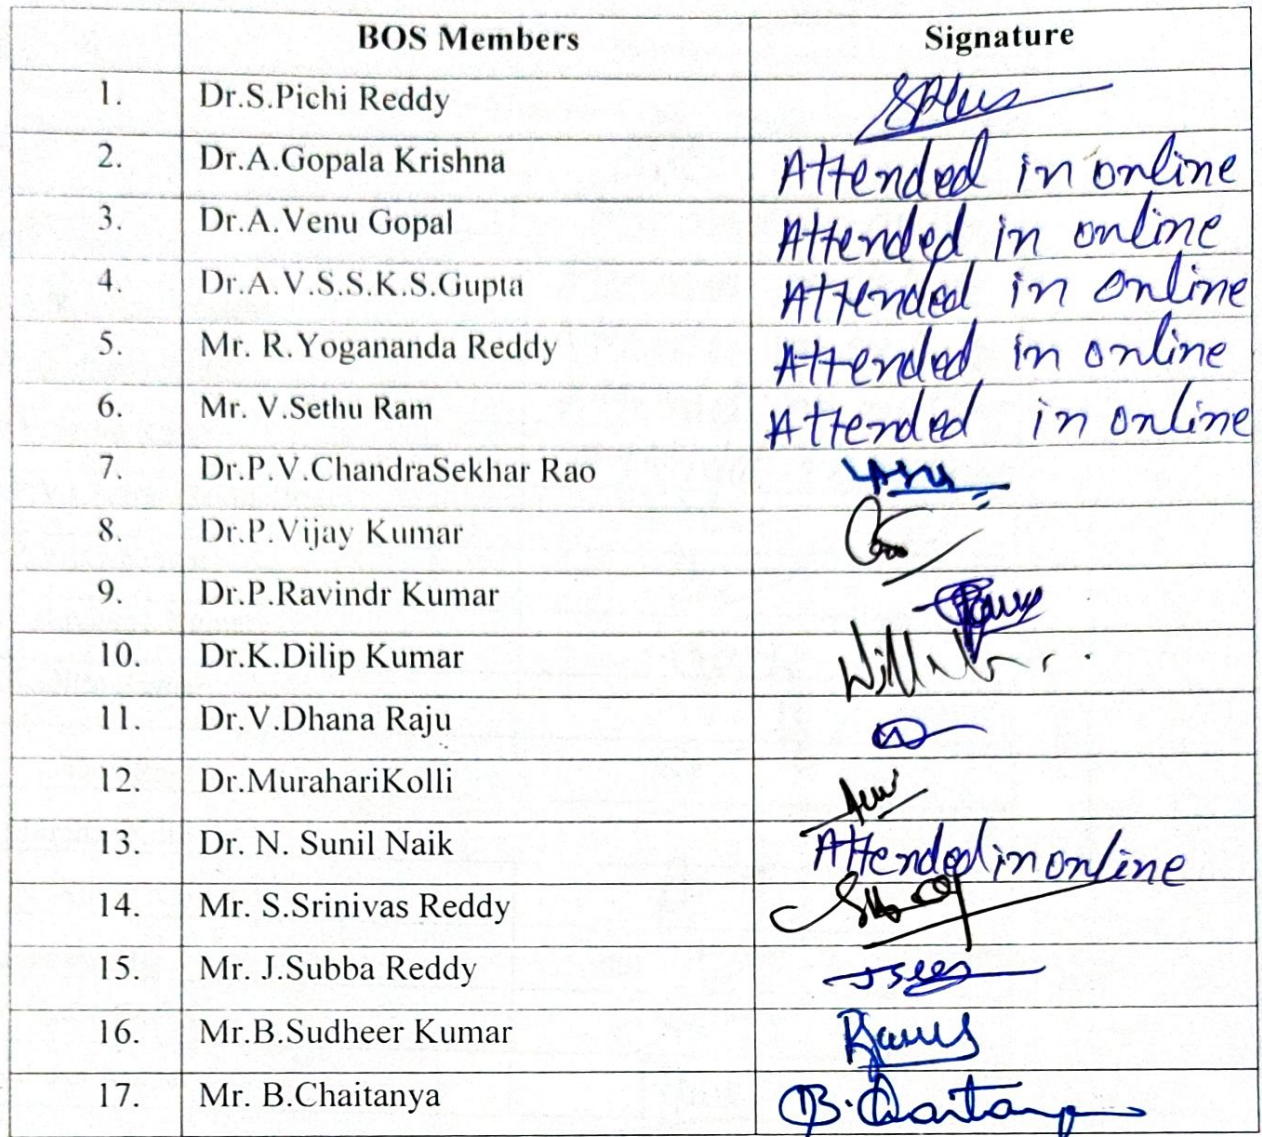 BOS Members Signature
1. Dr.S.Pichi Reddy
2. Dr.A.Gopala Krishna Attended in online
3. Dr.A.Venu Gopal Attended in online
4. Dr.A.V.S.S.K.S.Gupta Attended in online
5. Mr. R.Yogananda Reddy Attended in online
6. Mr. V.Sethu Ram Attended in online
7. Dr.P.V.ChandraSekhar Rao
8. Dr.P.Vijay Kumar
9. Dr.P.Ravindr Kumar
10. Dr.K.Dilip Kumar
11. Dr.V.Dhana Raju
12. Dr.MurahariKolli
13. Dr. N. Sunil Naik Attended in online
14. Mr. S.Srinivas Reddy
15. Mr. J.Subba Reddy
16. Mr.B.Sudheer Kumar
17. Mr. B.Chaitanya B.Chaitanya